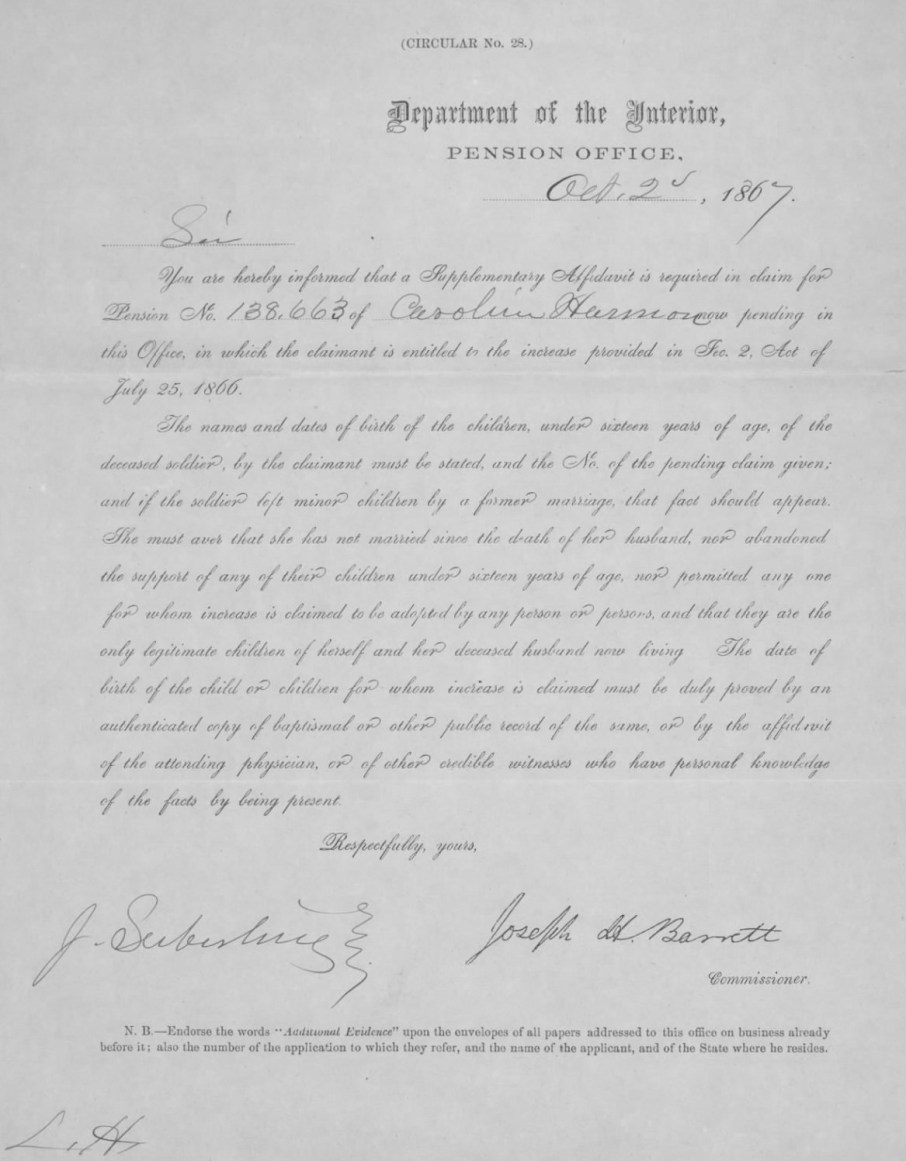 (CIRCULAR No. 28.)
Department of the Interior,
PENSION OFFICE,
Oct. 2d, 1867.
Sir
You are hereby informed that a Supplementary Affidavit is required in claim for
Pension No. 138.663 of Carolin Harmon now pending in
this Office, in which the claimant is entitled to the increase provided in Sec. 2, Act of
July 25, 1866.
The names and dates of birth of the children, under sixteen years of age, of the
deceased soldier, by the claimant must be stated, and the No. of the pending claim given;
and if the soldier left minor children by a former marriage, that fact should appear.
She must aver that she has not married since the death of her husband, nor abandoned
the support of any of their children under sixteen years of age, nor permitted any one
for whom increase is claimed to be adopted by any person or persons, and that they are the
only legitimate children of herself and her deceased husband now living The date of
birth of the child or children for whom increase is claimed must be duly proved by an
authenticated copy of baptismal or other public record of the same, or by the affidavit
of the attending physician, or of other credible witnesses who have personal knowledge
of the facts by being present.
Respectfully, yours,
J. Seiberling Joseph H. Barrett
Commissioner.
N. B.—Endorse the words "Additional Evidence" upon the envelopes of all papers addressed to this office on business already
before it; also the number of the application to which they refer, and the name of the applicant, and of the State where he resides.
L. H.